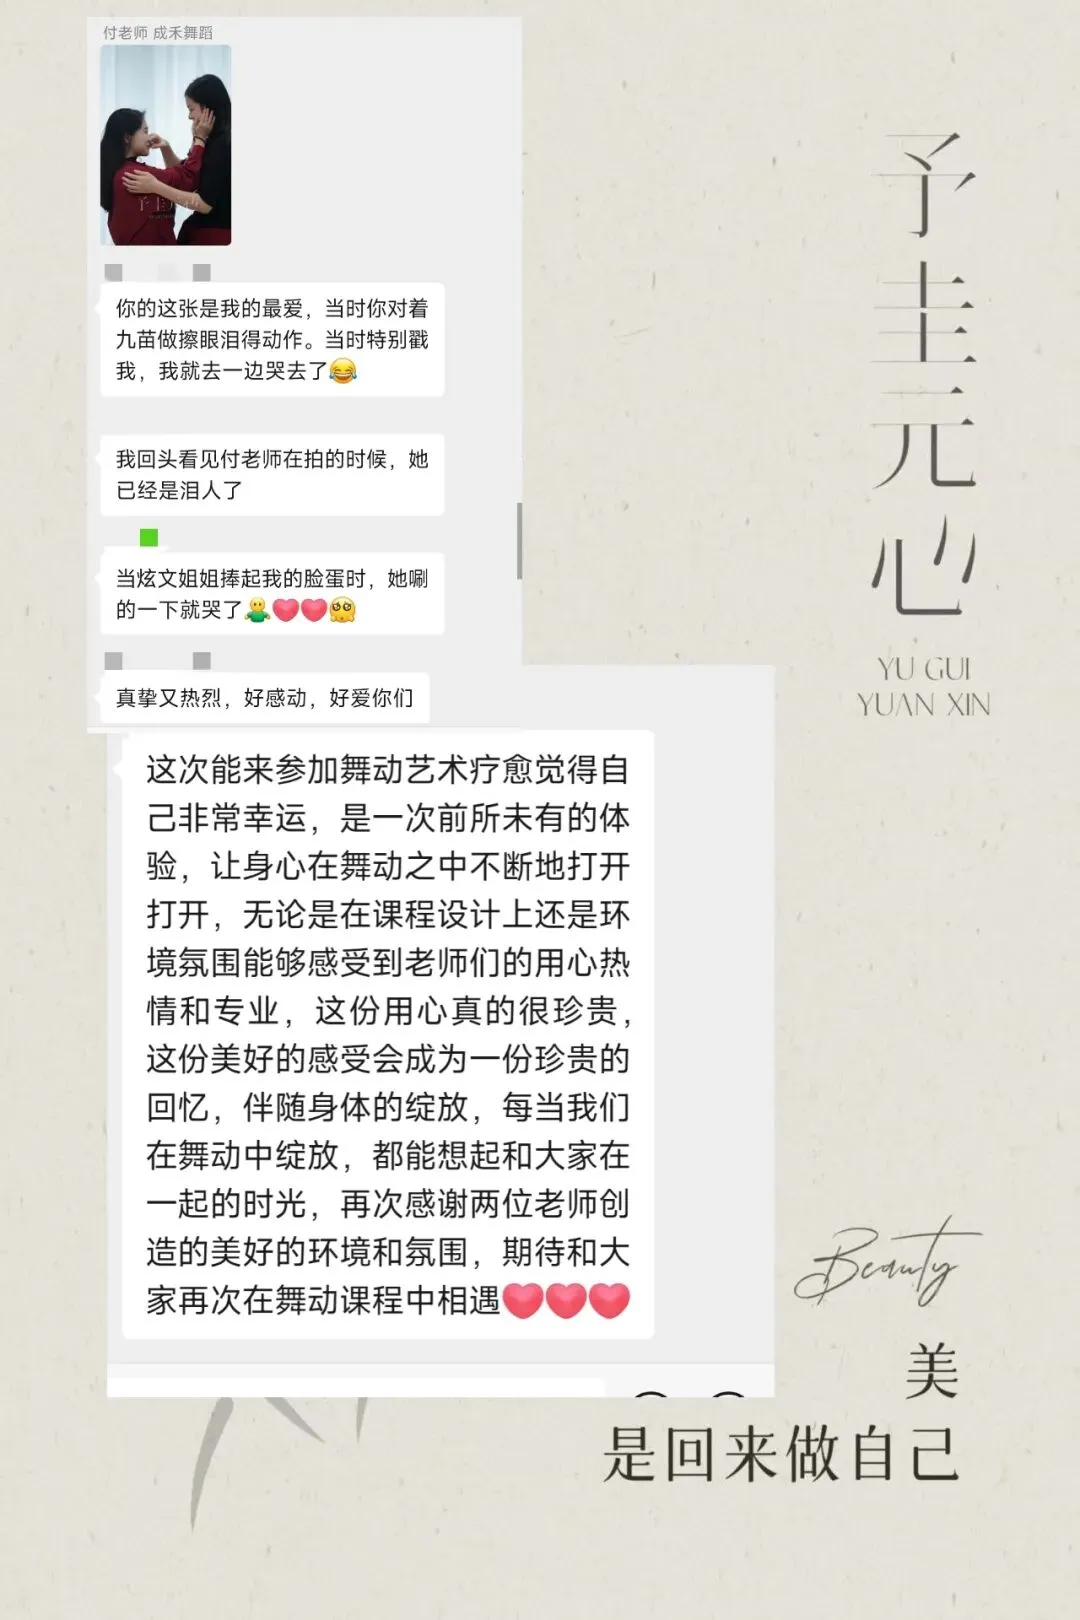 付老师 成禾舞蹈
你的这张是我的最爱，当时你对着
九苗做擦眼泪得动作。当时特别戳
我，我就去一边哭去了😂
我回头看见付老师在拍的时候，她
已经是泪人了
当炫文姐姐捧起我的脸蛋时，她唰
的一下就哭了🫂❤️❤️🥺
真挚又热烈，好感动，好爱你们
这次能来参加舞动艺术疗愈觉得自
己非常幸运，是一次前所未有的体
验，让身心在舞动之中不断地打开
打开，无论是在课程设计上还是环
境氛围能够感受到老师们的用心热
情和专业，这份用心真的很珍贵，
这份美好的感受会成为一份珍贵的
回忆，伴随身体的绽放，每当我们
在舞动中绽放，都能想起和大家在
一起的时光，再次感谢两位老师创
造的美好的环境和氛围，期待和大
家再次在舞动课程中相遇❤️❤️❤️
予圭元心
YU GUI
YUAN XIN
Beauty
美
是回来做自己